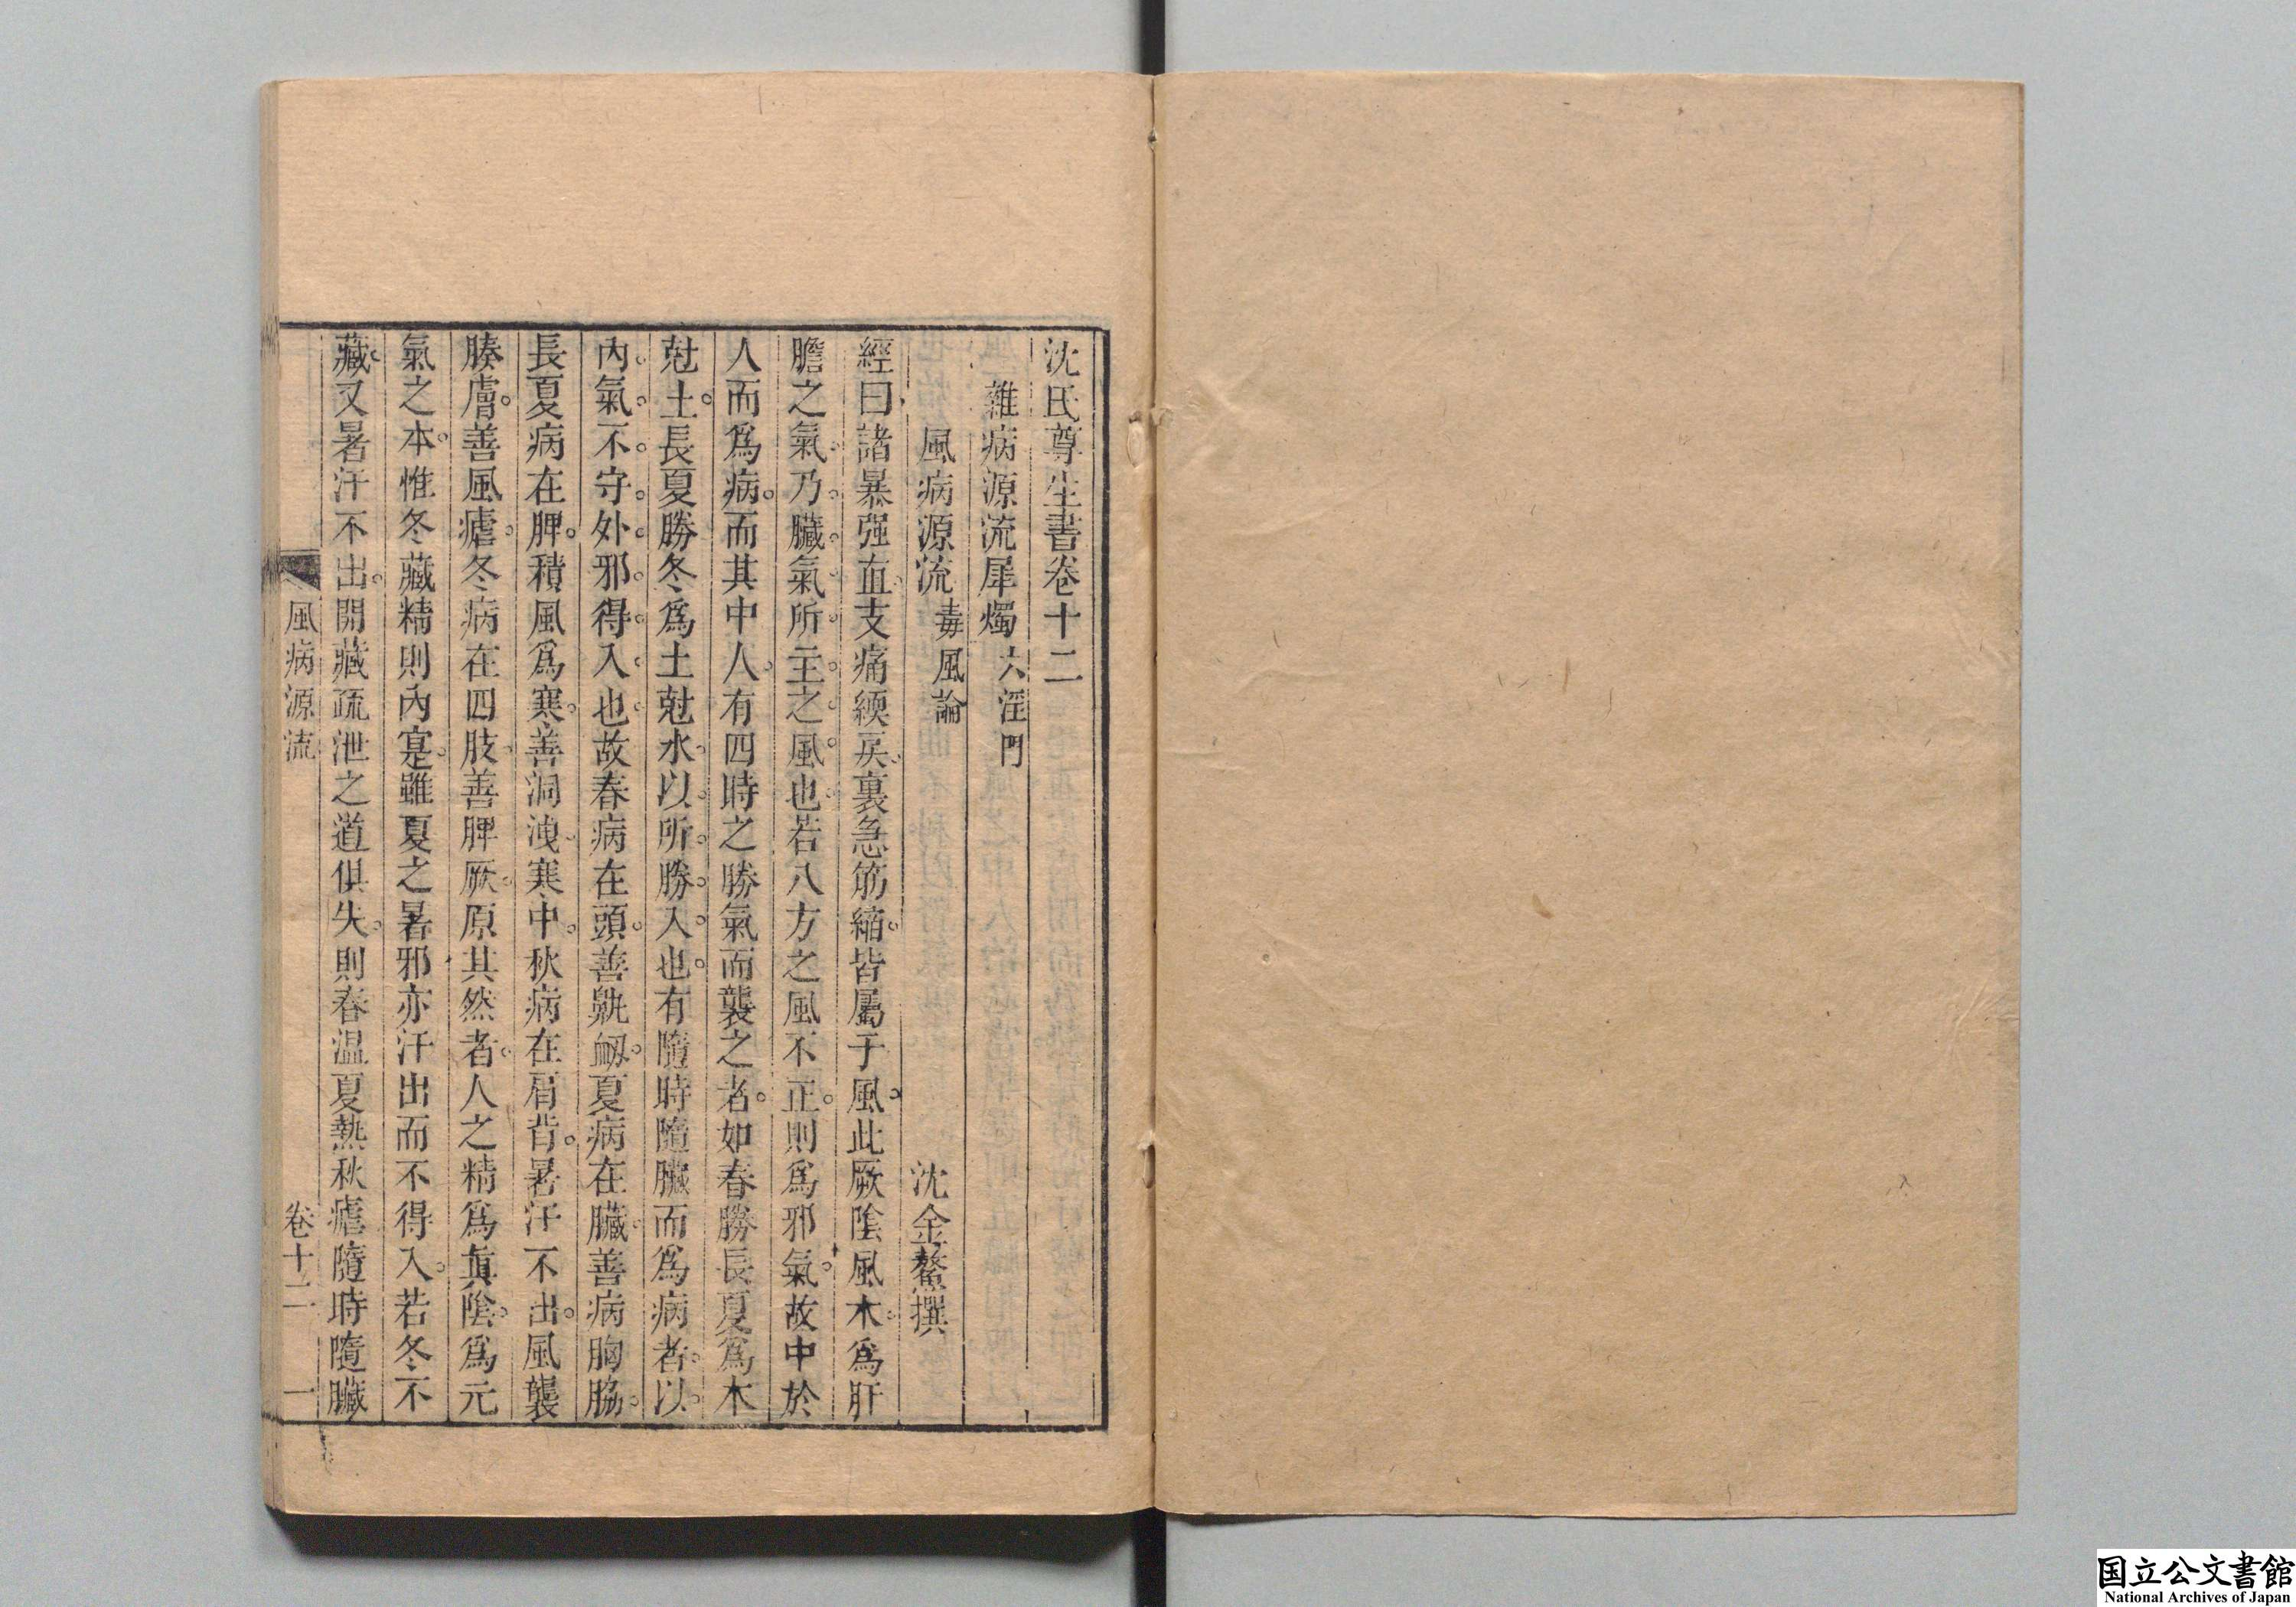 沈氏尊生書卷十二
雜病源流犀燭 六淫門
風病源流 毒風論 沈金鰲撰
經曰諸暴强直支痛緛戾裏急筋縮皆屬于風此厥陰風木爲肝
膽之氣乃臟氣所主之風也若八方之風不正則爲邪氣故中於
人而爲病而其中人有四時之勝氣而襲之者如春勝長夏爲木
尅土長夏勝冬爲土尅水以所勝入也有隨時隨臟而爲病者以
內氣不守外邪得入也故春病在頭善鼽衂夏病在臟善病胸脇
長夏病在脾積風爲寒善洞洩寒中秋病在肩背暑汗不出風襲
腠膚善風瘧冬病在四肢善脾厥原其然者人之精爲眞陰爲元
氣之本惟冬藏精則內寔雖夏之暑邪亦汗出而不得入若冬不
藏又暑汗不出開藏疏泄之道俱失則春溫夏熱秋瘧隨時隨臟
風病源流 卷十二 一
国立公文書館
National Archives of Japan